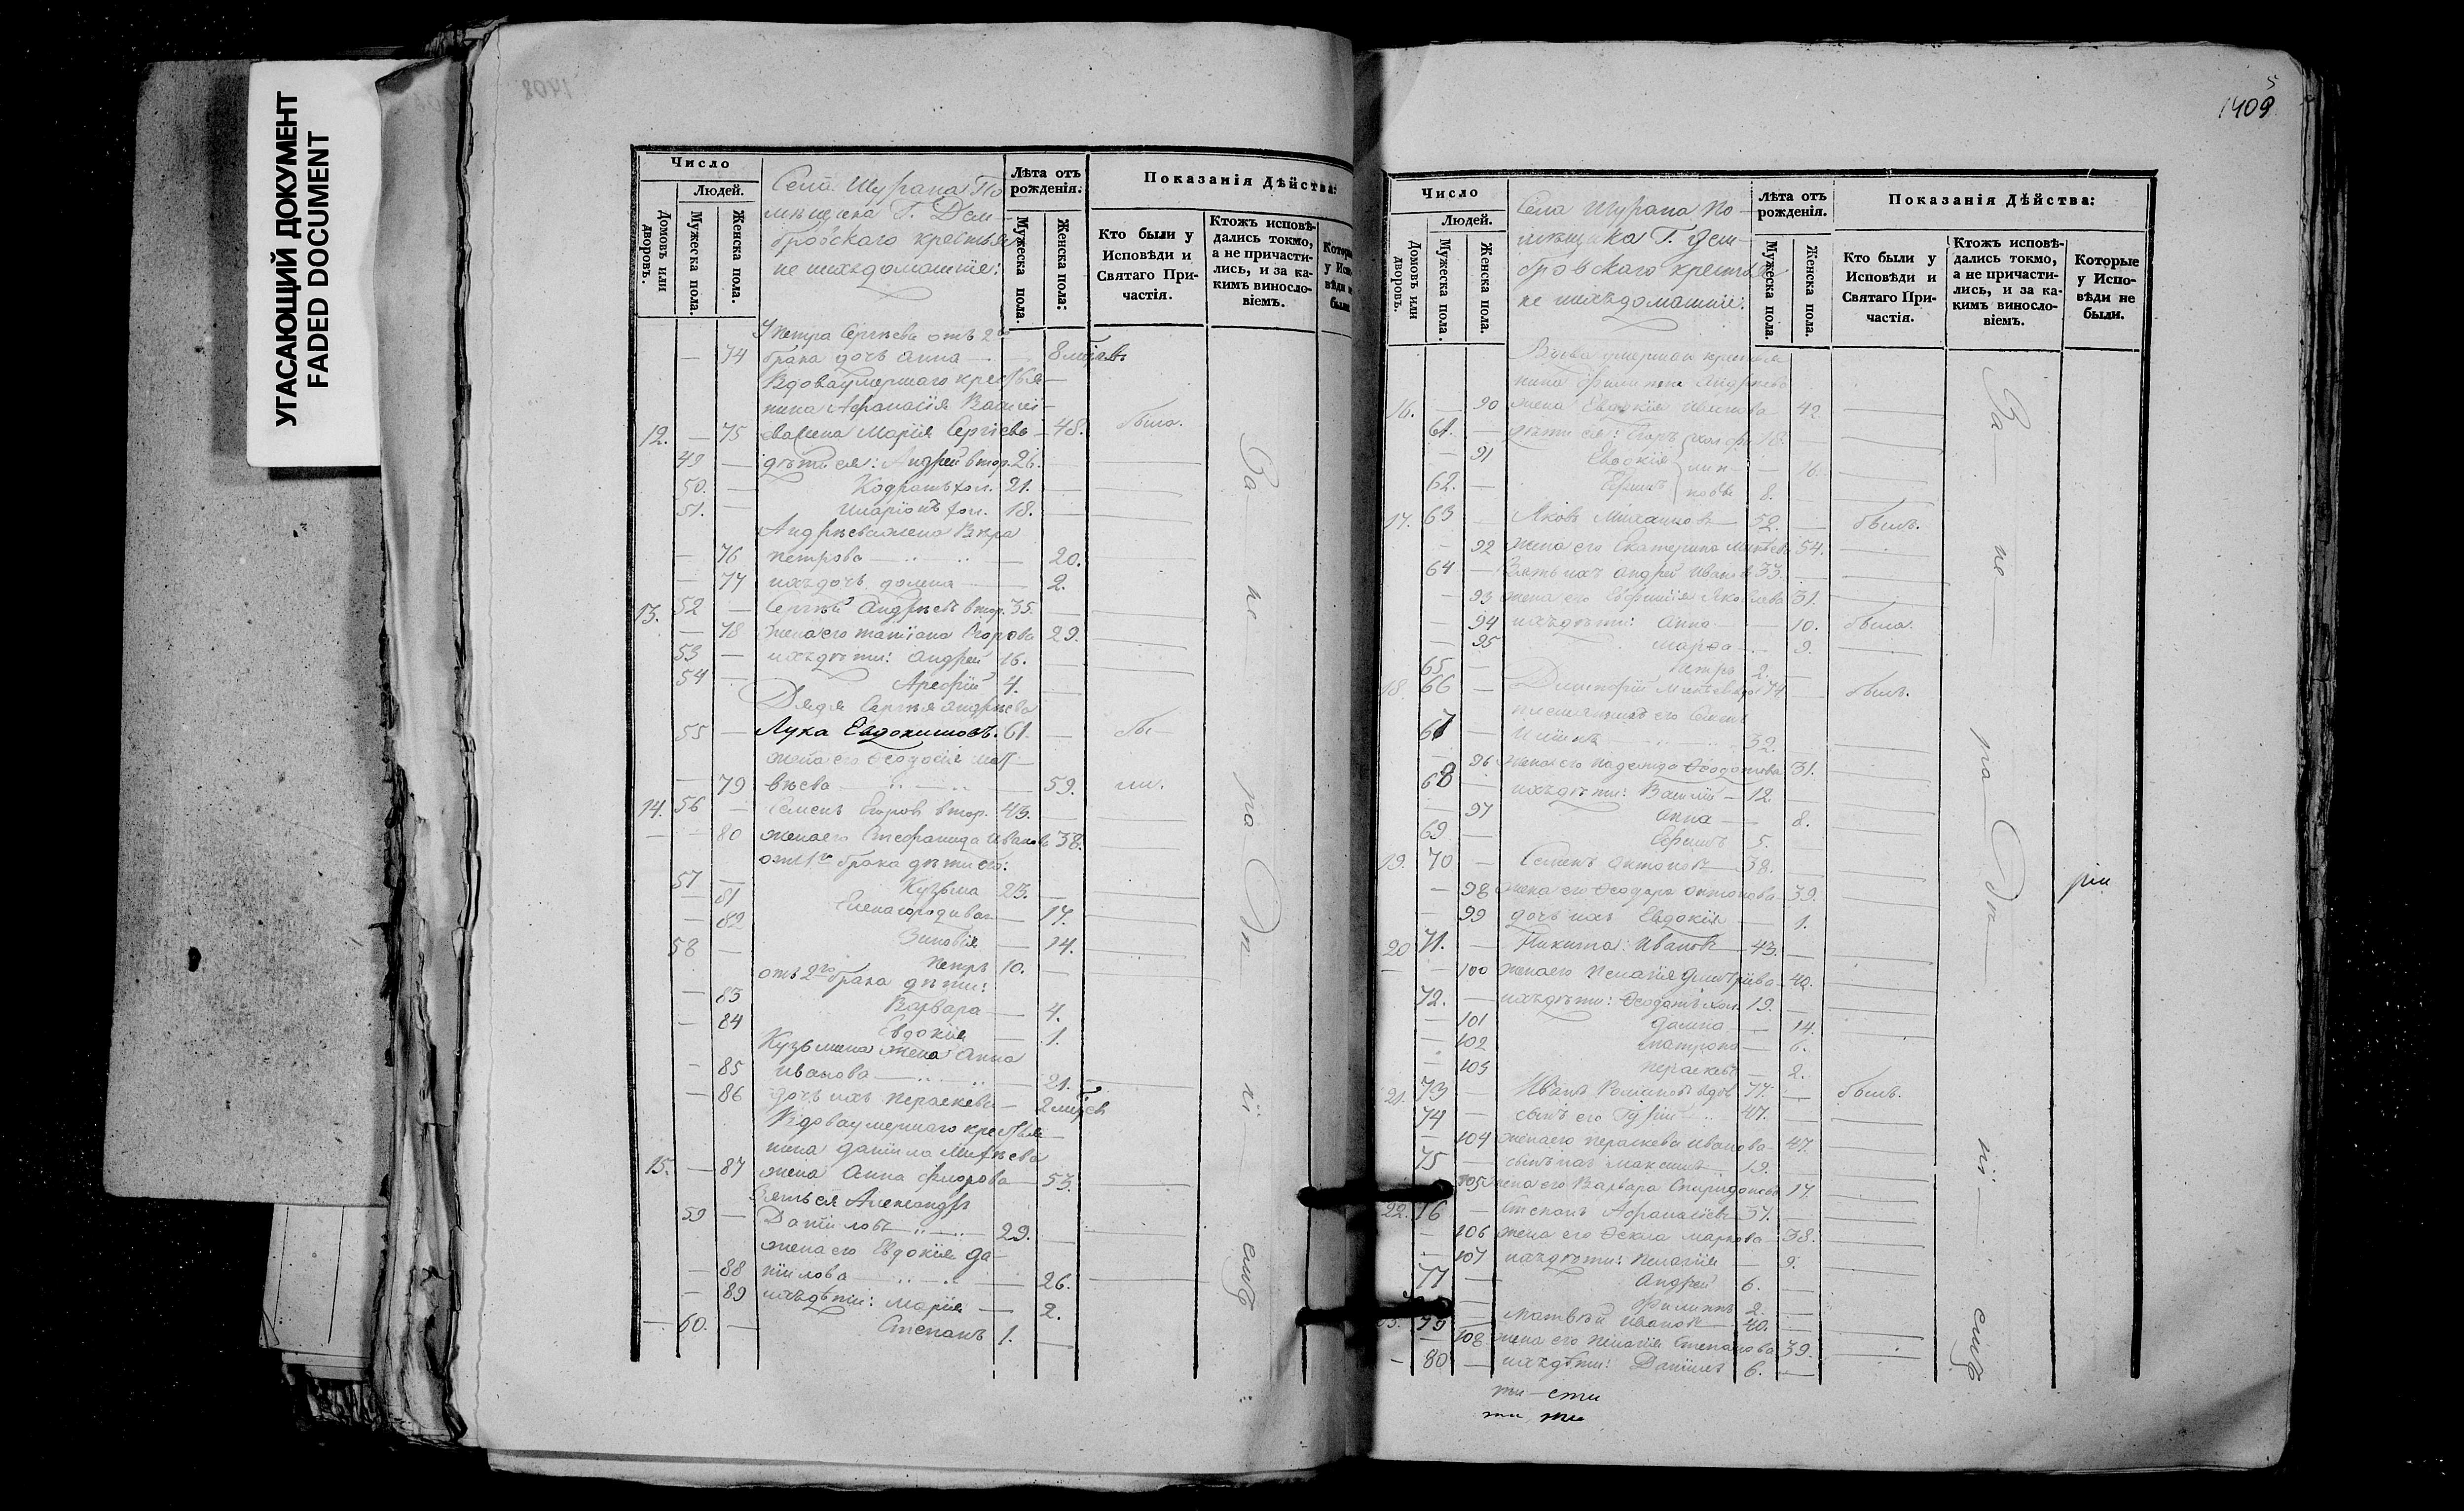 УГАСАЮЩИЙ ДОКУМЕНТ
FADED DOCUMENT
Число
Людей.
Домовъ или дворовъ.
Мужеска пола.
Женска пола.
Села Шурана По
мѣщика Г. Дем
бровскаго крестья
не и ихъ домашніе:
Лѣта отъ рожденія.
Мужеска пола.
Женска пола:
Показанія Дѣйства:
Кто были у Исповѣди и Святаго Причастія.
Ктожъ исповѣдались токмо, а не причастились, и за какимъ винословіемъ.
У Петра Сергѣева отъ 2го
— 74 брака дочь Анна — 8 мѣсяц.
Вдова умершаго крестья-
нина Афанасія Василі-
12. — 75 ева жена Марія Сергіева — 48. была.
49 — дѣти ея: Андрей втор. 26. —
50. — Кодратъ хол. 21. —
51. — Иларіонъ хол. 18. —
Андрѣева жена Вѣра
— 76 Петрова — 20.
— 77 ихъ дочь Домна — 2.
13. 52 — Сергѣй Андрѣевъ втор. 35. —
— 78 жена его Татіана Егорова 29.
53 — ихъ дѣти: Андрей 16. —
54 — Арефій 4. —
Дядя Сергѣя Андрѣева
55 — Лука Евдокимовъ. 61. — бы-
жена его Ѳеодосія Мат-
— 79 вѣева — 59. ли.
14. 56 — Семенъ Егоровъ втор. 43. —
— 80 жена его Стефанида Иванова 38.
отъ 1го брака дѣти его:
57 — Кузьма 23. —
— 81 Елена 17.
— 82 Зиновія — 14.
58 — Петръ 10. —
отъ 2го брака дѣти:
— 83 Варвара — 4.
— 84 Евдокія — 1.
Кузьмина жена Анна
— 85 Иванова — 21.
— 86 дочь ихъ Параскева — 2 мѣсяц
Вдова умершаго крестья-
нина Данила Михѣева
15. — 87 жена Анна Фролова — 53.
Зять ея Александръ
59 — Даниловъ — 29. —
жена его Евдокія Да-
— 88 нилова — 26.
— 89 ихъ дѣти: Марія — 2.
— 60. — Степанъ 1. —
За — не — ра — Дѣ — ні — емъ
5
1409
Число
Людей.
Домовъ или дворовъ.
Мужеска пола
Женска пола.
Села Шурана По-
мѣщика Г. Дем-
бровскаго крестья
не и ихъ домашніе:
Лѣта отъ рожденія.
Мужеска пола
Женска пола.
Показанія Дѣйства:
Кто были у Исповѣди и Святаго Причастія.
Ктожъ исповѣдались токмо, а не причастились, и за какимъ винословіемъ.
Которые у Исповѣди не были.
крестья-
нина Филиппа Андрѣева
16. — 90 жена Евдокія Иванова 42.
61. — дѣти ея: Егоръ 18. —
— 91 Евдокія — 16.
62. — Ефимъ 8. —
17. 63 — Яковъ Михайловъ — 52. — былъ.
— 92 жена его Екатерина 54.
64 — Зять ихъ Андрей Иванов 33. —
— 93 жена его Евфимія Яковлева 31.
— 94 ихъ дѣти: Анна — 10. была.
— 95 Марфа — 9.
65 — Петръ 2. —
18. 66 — Димитрій 74 — былъ.
племянникъ его Семенъ
67 — 32. —
— 96 жена его Надежда Ѳеодотова 31.
68 — ихъ дѣти: Василій — 12.
— 97 Анна — 8.
69 — Ефимъ 5. —
19. 70 — Семенъ Антоновъ — 38. —
— 98 жена его Ѳеодора Антонова 39.
— 99 дочь ихъ Евдокія — 1.
20 71. — Никита Ивановъ — 43. —
— 100 жена его Пелагія Дмитріева 40.
72. — ихъ дѣти: Ѳеодотъ хол. 19. —
— 101 Домна — 14.
— 102 Матрона — 6.
103 Параскева — 2.
21. 73 — Иванъ вдов 77. — былъ.
74 — сынъ его Гурій — 47. —
— 104 жена его Параскева Иванова 47.
75 — сынъ ихъ Максимъ 19. —
105 жена его Варвара Спиридонова 17.
22. 76 — Степанъ Афанасіевъ 37. —
— 106 жена его Ѳекла Маркова — 38.
— 107 ихъ дѣти: Пелагія — 9.
77 — Андрей 6. —
— Филиппъ 2. —
79 — Матвѣй Ивановъ — 40. —
— 108 жена его Пелагія Степанова 39.
— 80 — ихъ дѣти: Даніилъ 6. —
За — не — ра — Дѣ — ні — емъ